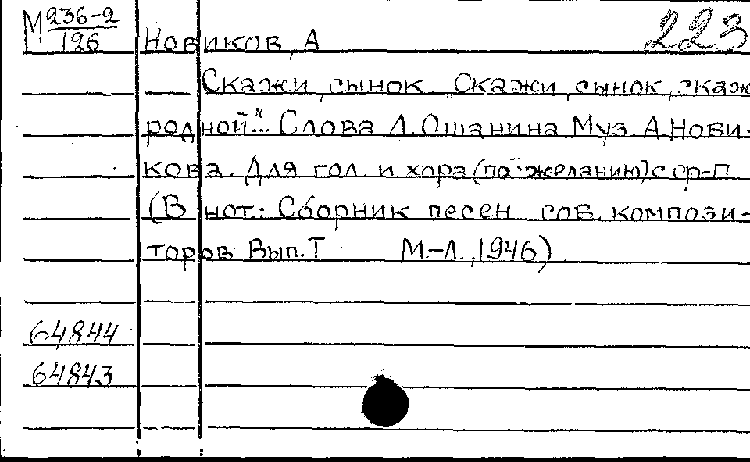 М 236-2/126
223
Новиков, А
Скажи, сынок. „Скажи, сынок, скаж
родной“... Слова Л. Ошанина Муз. А. Нови-
кова. Для гол. и хора (по желанию) с ф-п
(В нот: Сборник песен сов. компози-
торов Вып. I М.-Л., 1946)
64844
64843